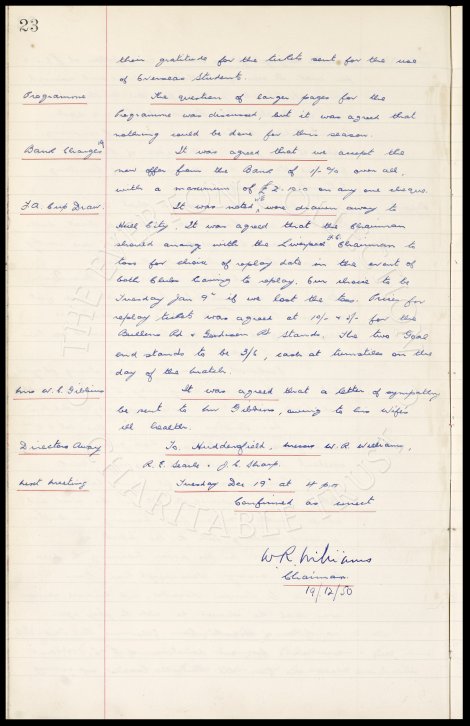 23
their gratitude for the tickets sent for the use
of Overseas Students
Programme The question of larger pages for the
Programme was discussed, but it was agreed that
nothing could be done for this season.
Bank Charges It was agreed that we accept the
new offer from the Bank of 1/- % over all,
with a maximum of £2.10.0 on any one cheque.
F.A. Cup Draw. It was noted we were drawn away to
Hull City. It was agreed that the Chairman
should arrange with the Liverpool F.C. Chairman to
toss for choice of replay date in the event of
both Clubs having to replay. Our choice to be
Tuesday Jan 9th if we lost the toss. Prices for
replay tickets was agreed at 10/- & 5/- for the
Bullens Rd & Goodison Rd Stands. The two Goal
end stands to be 3/6, cash at turnstiles on the
day of the match.
Mrs W. C. Gibbins It was agreed that a letter of sympathy
be sent to Mr Gibbins, owing to his wife's
ill health.
Directors Away To Huddersfield, Messrs W. R. Williams,
R. E. Searle & J. C. Sharp.
Next Meeting Tuesday Dec 19th at 4 p.m
Confirmed as correct
W.R. Williams
Chairman.
19/12/50
THE EVERTON
CHARITABLE TRUST